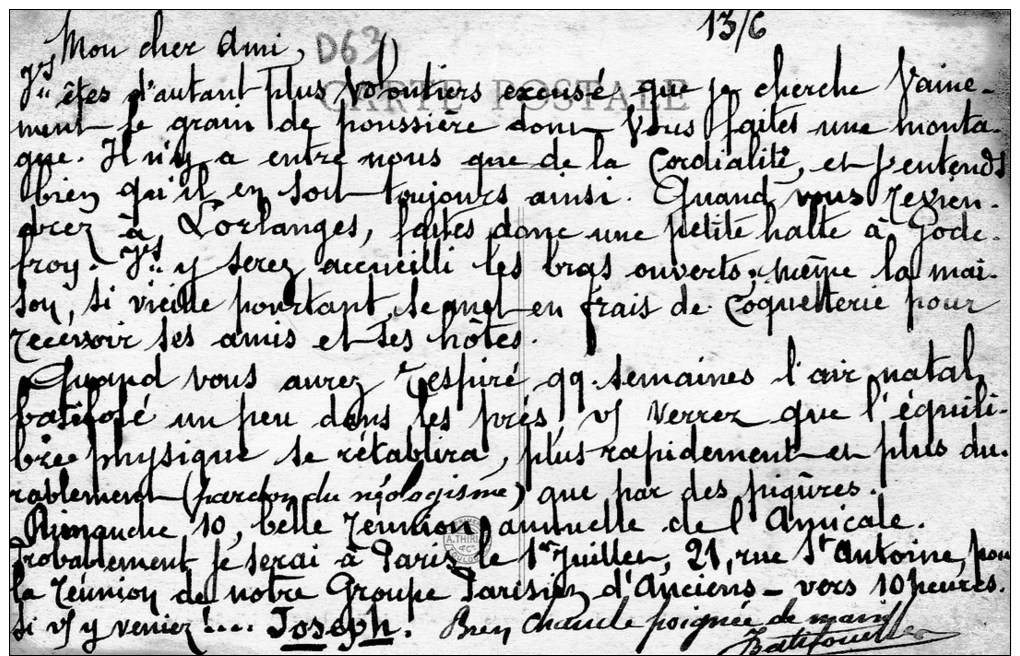 13/6
Mon cher Ami, D63
CARTE POSTALE
Vs êtes d'autant plus volontiers excusé que je cherche Vaine-
ment le grain de poussière dont Vous faites une monta-
gne. Il n'y a entre nous que de la Cordialité, et j'entends
bien qu'il en soit toujours ainsi. Quand vous revien-
drez à Lorlanges, faites donc une petite halte à Gode-
froy. Vs y serez accueilli les bras ouverts; même la mai-
son, si vieille pourtant, se met en frais de Coquetterie pour
recevoir ses amis et ses hôtes.
Quand vous aurez respiré qq. semaines l'air natal,
batifolé un peu dans les prés, vs verrez que l'équili-
bre physique se rétablira, plus rapidement et plus du-
rablement (pardon du néologisme) que par des piqûres.
Dimanche 10, belle réunion annuelle de l'Amicale.
Probablement je serai à Paris le 1er Juillet, 21, rue St Antoine, pour
la réunion de notre Groupe Parisien d'Anciens – vers 10 heures.
Si vs y veniez!.... Joseph. Bien chaude poignée de main
A. THIRI